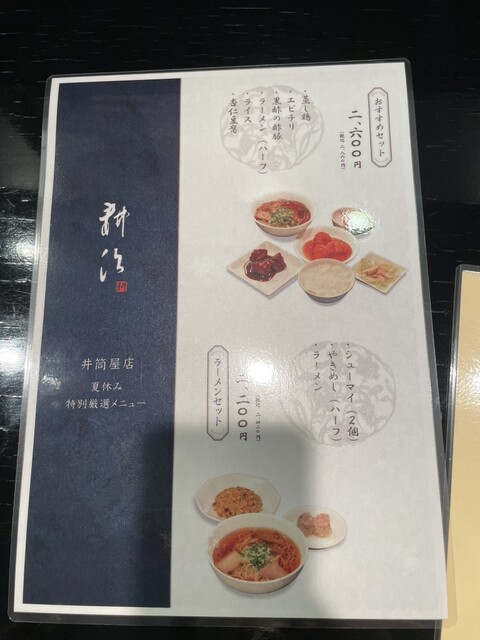 おすすめセット
二、六〇〇円
(税込 二、八六〇円)
・蒸し鶏
・エビチリ
・黒酢の酢豚
・ラーメン(ハーフ)
・ライス
・杏仁豆腐
耕治
井筒屋店
夏休み
特別厳選メニュー
ラーメンセット
二、二〇〇円
(税込 二、四二〇円)
・シューマイ(2個)
・やきめし(ハーフ)
・ラーメン